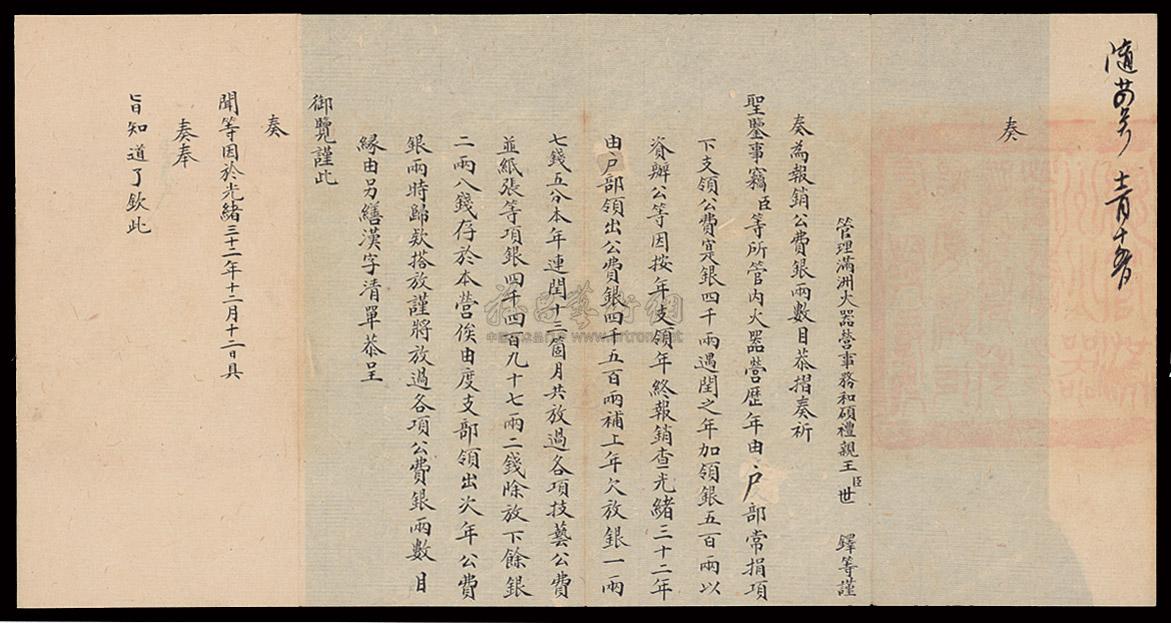 奏
管理滿洲火器營事務和碩禮親王臣世鐸等謹
奏為報銷公費銀兩數目恭摺奏祈
聖鑒事竊臣等所管內火器營歷年由戶部常捐項
下支領公費寔銀四千兩遇閏之年加領銀五百兩以
資辦公等因按年支領年終報銷查光緒三十二年
由戶部領出公費銀四千五百兩補上年欠放銀一兩
七錢五分本年連閏十三箇月共放過各項技藝公費
並紙張等項銀四千四百九十七兩二錢除放下餘銀
二兩八錢存於本營俟由度支部領出次年公費
銀兩時歸欵搭放謹將放過各項公費銀兩數目
緣由另繕漢字清單恭呈
御覽謹此
奏
聞等因於光緒三十二年十二月十二日具
奏奉
旨知道了欽此